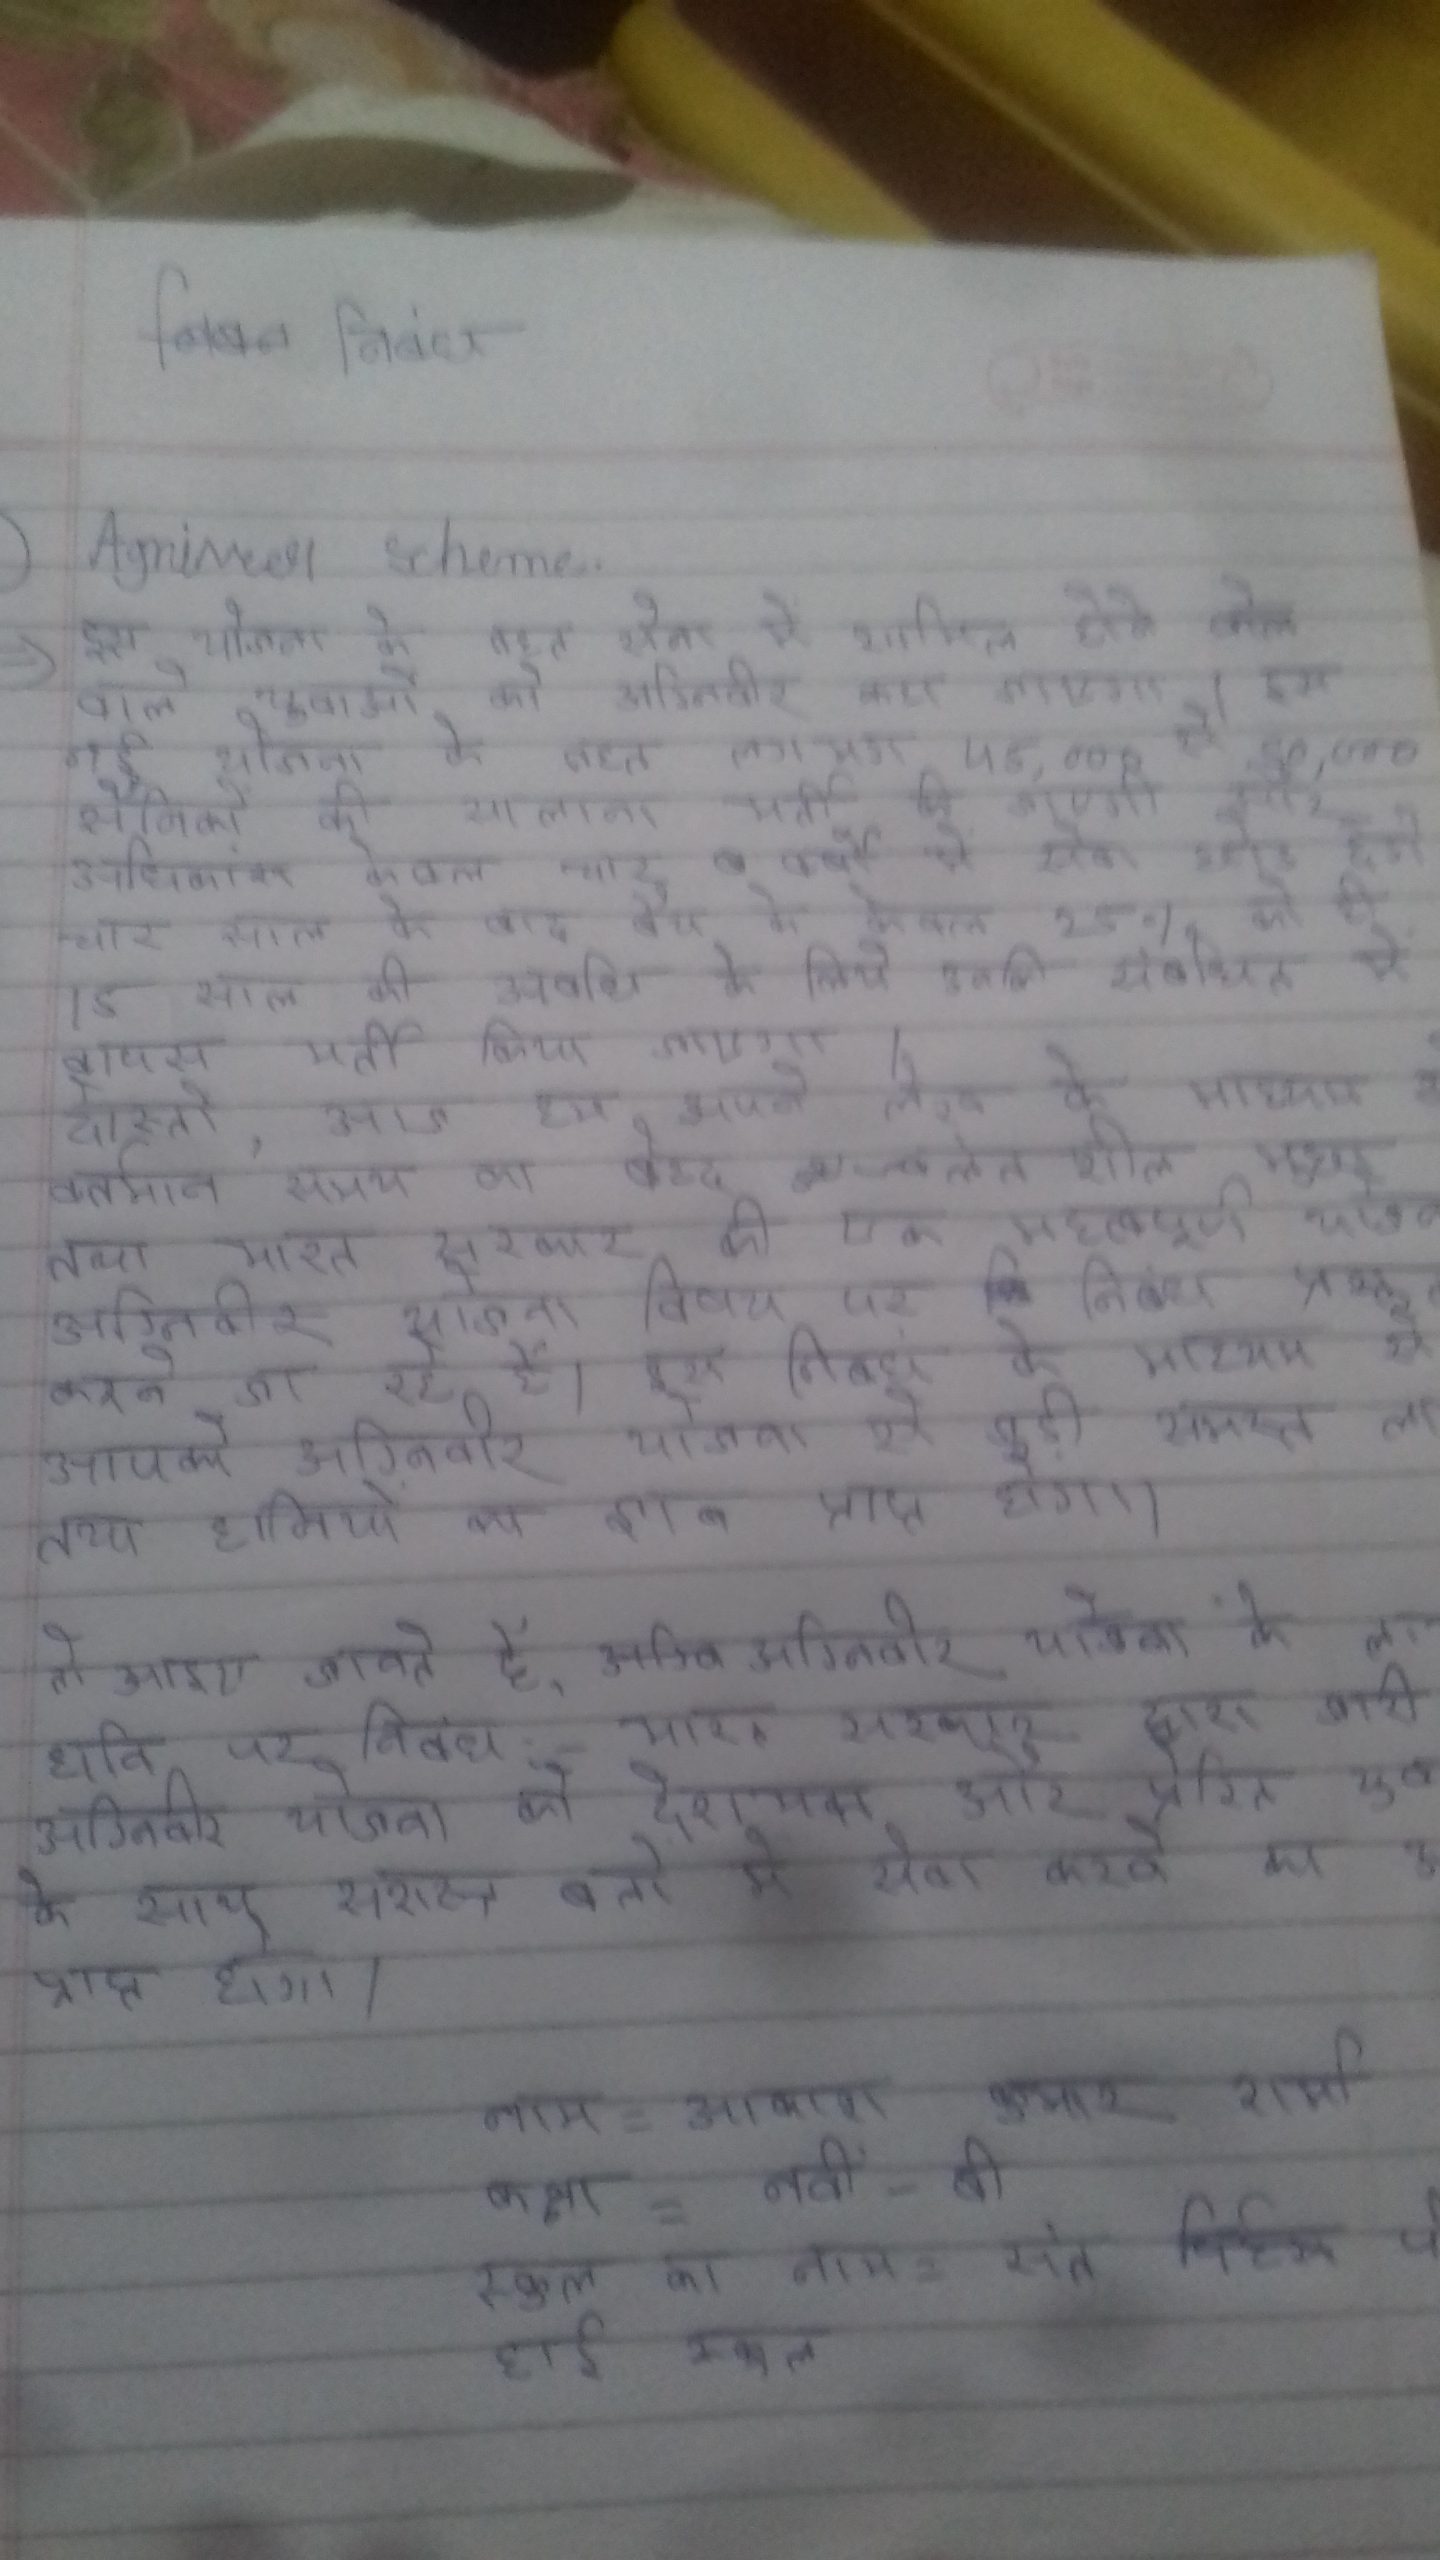 निबंध
Agniveer scheme.
इस योजना के तहत सेना में शामिल होने
वाले युवाओं को अग्निवीर कहा जाएगा। इस
नई योजना के तहत लगभग 45,000 से 50,000
सैनिकों की सालाना भर्ती की जाएगी और
अधिकांश केवल चार वर्षों में सेवा छोड़ देंगे
चार साल के बाद बैच के केवल 25% को ही
15 साल की अवधि के लिये उनकी संबंधित में
वापस भर्ती किया जाएगा।
दोस्तो, आज हम अपने लेख के माध्यम से
वर्तमान समय का बेहद शील
तथा भारत सरकार की एक महत्वपूर्ण
अग्निवीर योजना विषय पर निबंध
करने जा रहे हैं। इस निबंध के माध्यम से
आपको अग्निवीर योजना से जुड़ी समस्त
तथा हानियों का ज्ञान प्राप्त होगा।
तो आइए जानते हैं, अग्नि अग्निवीर योजना के
हानि पर निबंध :- भारत सरकार द्वारा जारी
अग्निवीर योजना को देशभक्त और प्रेरित
के साथ सशस्त्र बलों में सेवा करने का
प्राप्त होगा।
नाम = आकाश कुमार शर्मा
कक्षा = नवीं - बी
स्कुल का नाम = संत
हाई स्कूल